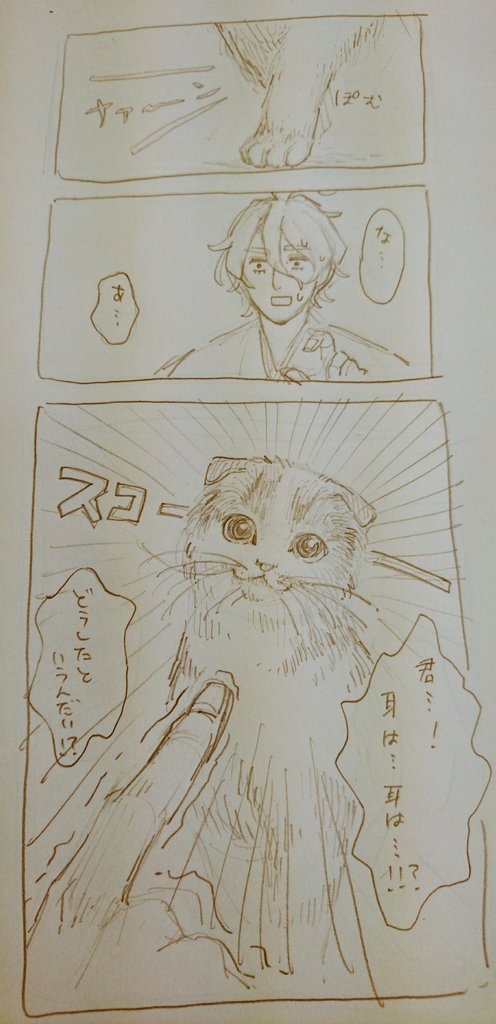 ぽむ
ヤァーーン
な…
あ…
スコー
君…!
耳は…耳は…!!?
どうしたと
いうんだい!?